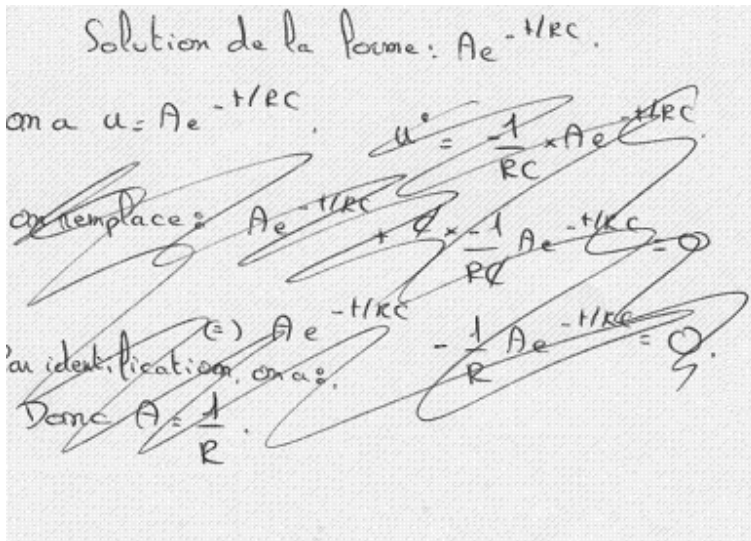 Solution de la forme : Ae^-t/RC.
on a u = Ae^-t/RC. u° = -1/RC × Ae^-t/RC.
on remplace : Ae^-t/RC + C × -1/RC Ae^-t/RC = 0
(=) Ae^-t/RC - 1/R Ae^-t/RC = 0.
Par identification, on a :
Donc A = 1/R.